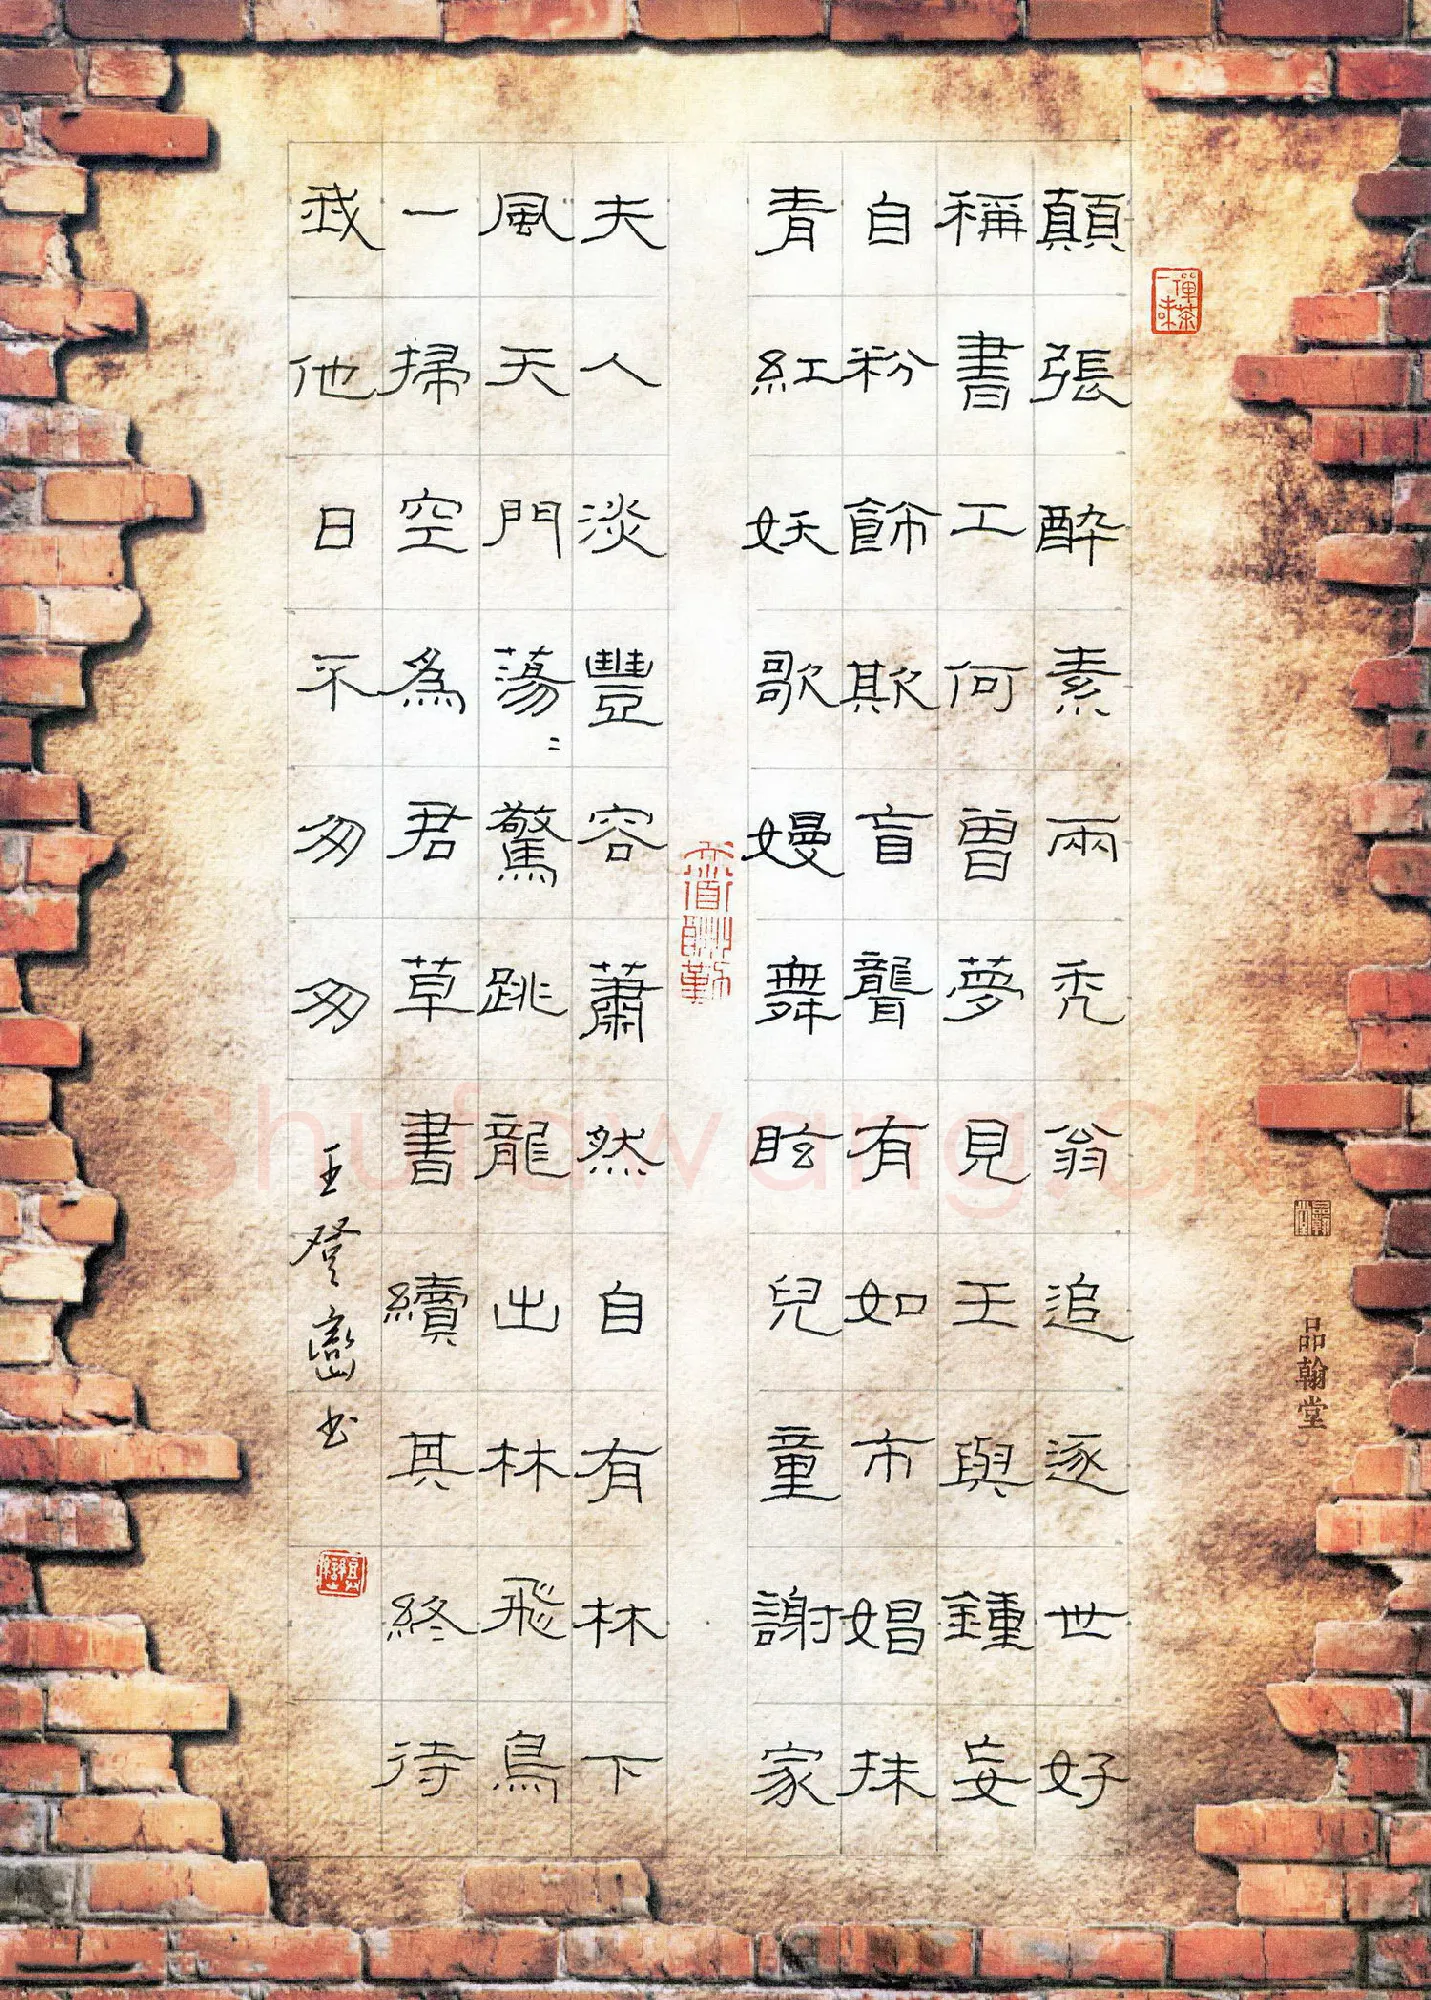 顛張醉素兩禿翁追逐世好
稱書工何曾夢見王與鍾妄
自粉飾欺盲聾有如市娼抹
青紅妖歌嫚舞眩兒童謝家
夫人淡豐容蕭然自有林下
風天門蕩〻驚跳龍出林飛鳥
一掃空為君草書續其終待
我他日不匆匆
王登巒书
禪茶一味
天道酬勤
品翰堂
shufawang.cn